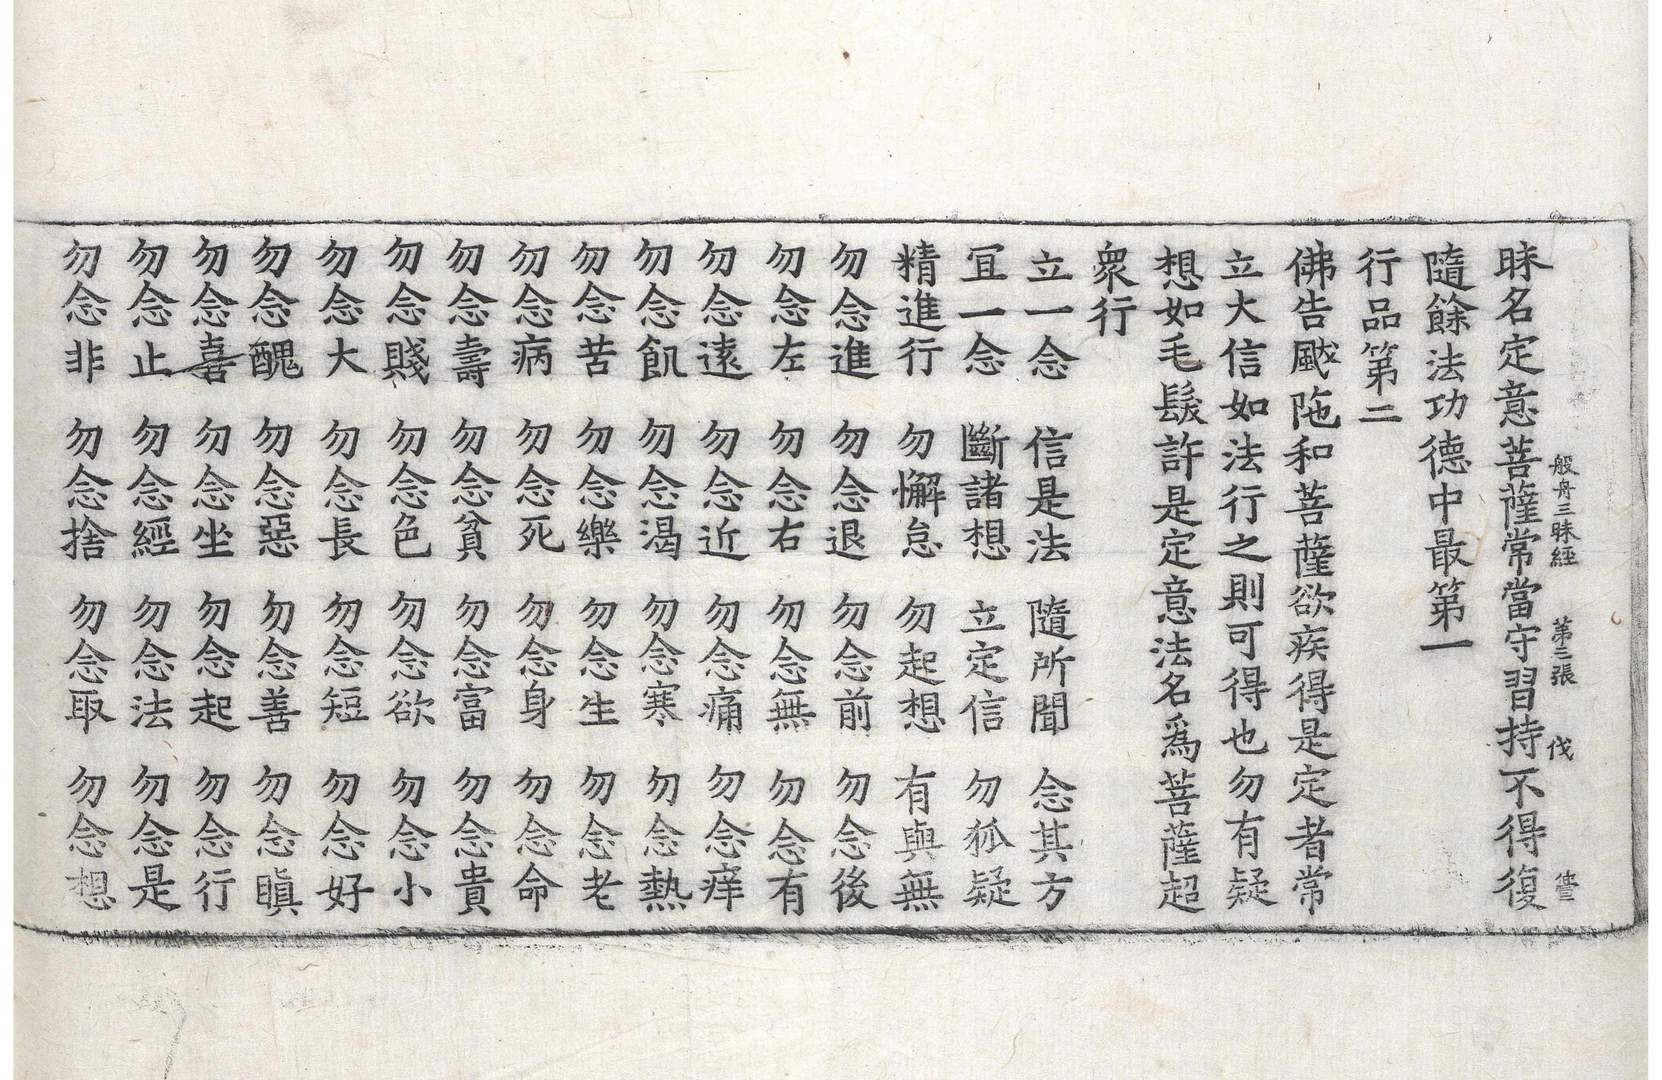 般舟三昧經　第三張　伐
昧名定意菩薩常當守習持不得復
隨餘法功德中最第一
行品第二
佛告颰陁和菩薩欲疾得是定者常
立大信如法行之則可得也勿有疑
想如毛髮許是定意法名爲菩薩超
衆行
立一念　信是法　隨所聞　念其方
冝一念　斷諸想　立定信　勿狐疑
精進行　勿懈怠　勿起想　有與無
勿念進　勿念退　勿念前　勿念後
勿念左　勿念右　勿念無　勿念有
勿念遠　勿念近　勿念痛　勿念痒
勿念飢　勿念渴　勿念寒　勿念熱
勿念苦　勿念樂　勿念生　勿念老
勿念病　勿念死　勿念身　勿念命
勿念壽　勿念貧　勿念富　勿念貴
勿念賤　勿念色　勿念欲　勿念小
勿念大　勿念長　勿念短　勿念好
勿念醜　勿念惡　勿念善　勿念瞋
勿念喜　勿念坐　勿念起　勿念行
勿念止　勿念經　勿念法　勿念是
勿念非　勿念捨　勿念取　勿念想